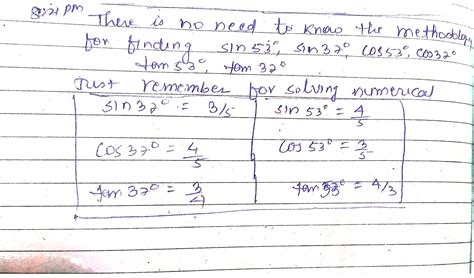 8:21 PM There is no need to know the methodology
for finding sin 53°, sin 37°, cos 53°, cos 37°
tan 53°, tan 37°
Just remember for solving numerical
sin 37° = 3/5 sin 53° = 4/5
cos 37° = 4/5 cos 53° = 3/5
tan 37° = 3/4 tan 53° = 4/3